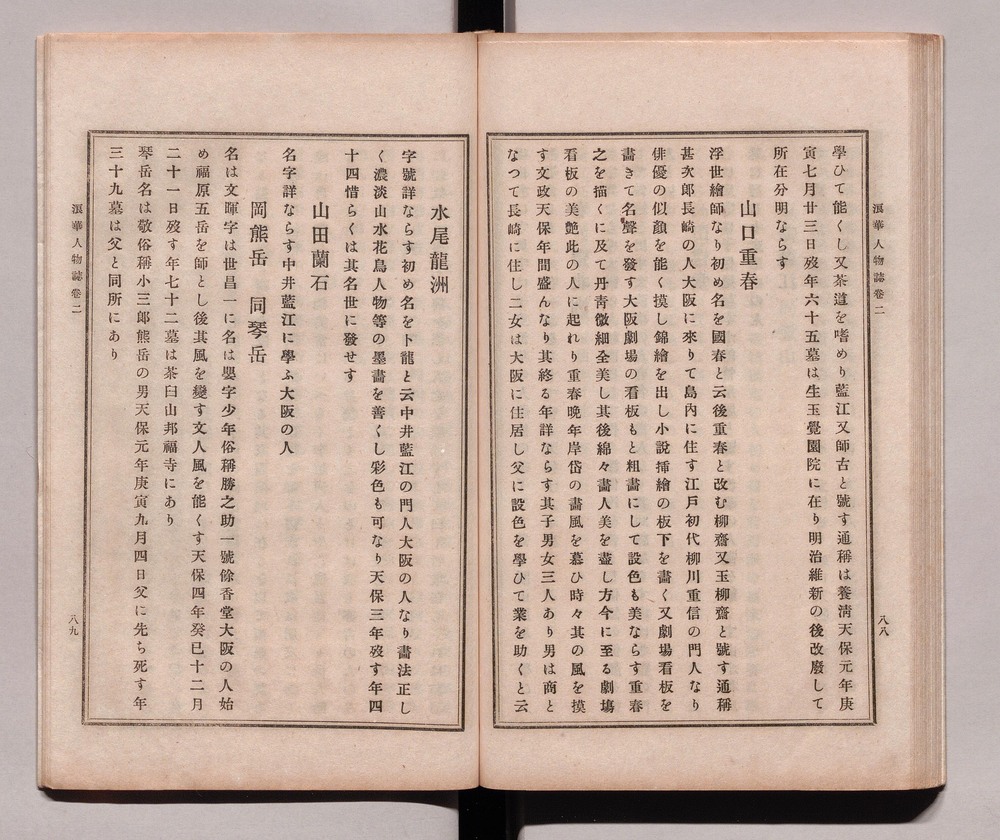 浪華人物誌卷二
八八
學ひて能くし又茶道を嗜めり藍江又師古と號す通稱は養淸天保元年庚
寅七月廿三日歿年六十五墓は生玉覺園院に在り明治維新の後改廢して
所在分明ならす
山口重春
浮世繪師なり初め名を國春と云後重春と改む柳齋又玉柳齋と號す通稱
甚次郎長崎の人大阪に來りて島內に住す江戸初代柳川重信の門人なり
俳優の似顏を能く摸し錦繪を出し小說挿繪の板下を畵く又劇場看板を
畵きて名聲を發す大阪劇場の看板もと粗畵にして設色も美ならす重春
之を描くに及て丹靑微細全美し其後綿々畵人美を盡し方今に至る劇塲
看板の美艶此の人に起れり重春晩年岸岱の畵風を慕ひ時々其の風を摸
す文政天保年間盛んなり其終る年詳ならす其子男女三人あり男は商と
なつて長崎に住し二女は大阪に住居し父に設色を學ひて業を助くと云
水尾龍洲
字號詳ならす初め名を卜龍と云中井藍江の門人大阪の人なり畵法正し
く濃淡山水花鳥人物等の墨畵を善くし彩色も可なり天保三年歿す年四
十四惜らくは其名世に發せす
山田蘭石
名字詳ならす中井藍江に學ふ大阪の人
岡熊岳　同琴岳
名は文暉字は世昌一に名は嬰字少年俗稱勝之助一號餘香堂大阪の人始
め福原五岳を師とし後其風を變す文人風を能くす天保四年癸巳十二月
二十一日歿す年七十二墓は茶臼山邦福寺にあり
琴岳名は敬俗稱小三郎熊岳の男天保元年庚寅九月四日父に先ち死す年
三十九墓は父と同所にあり
浪華人物誌卷二
八九